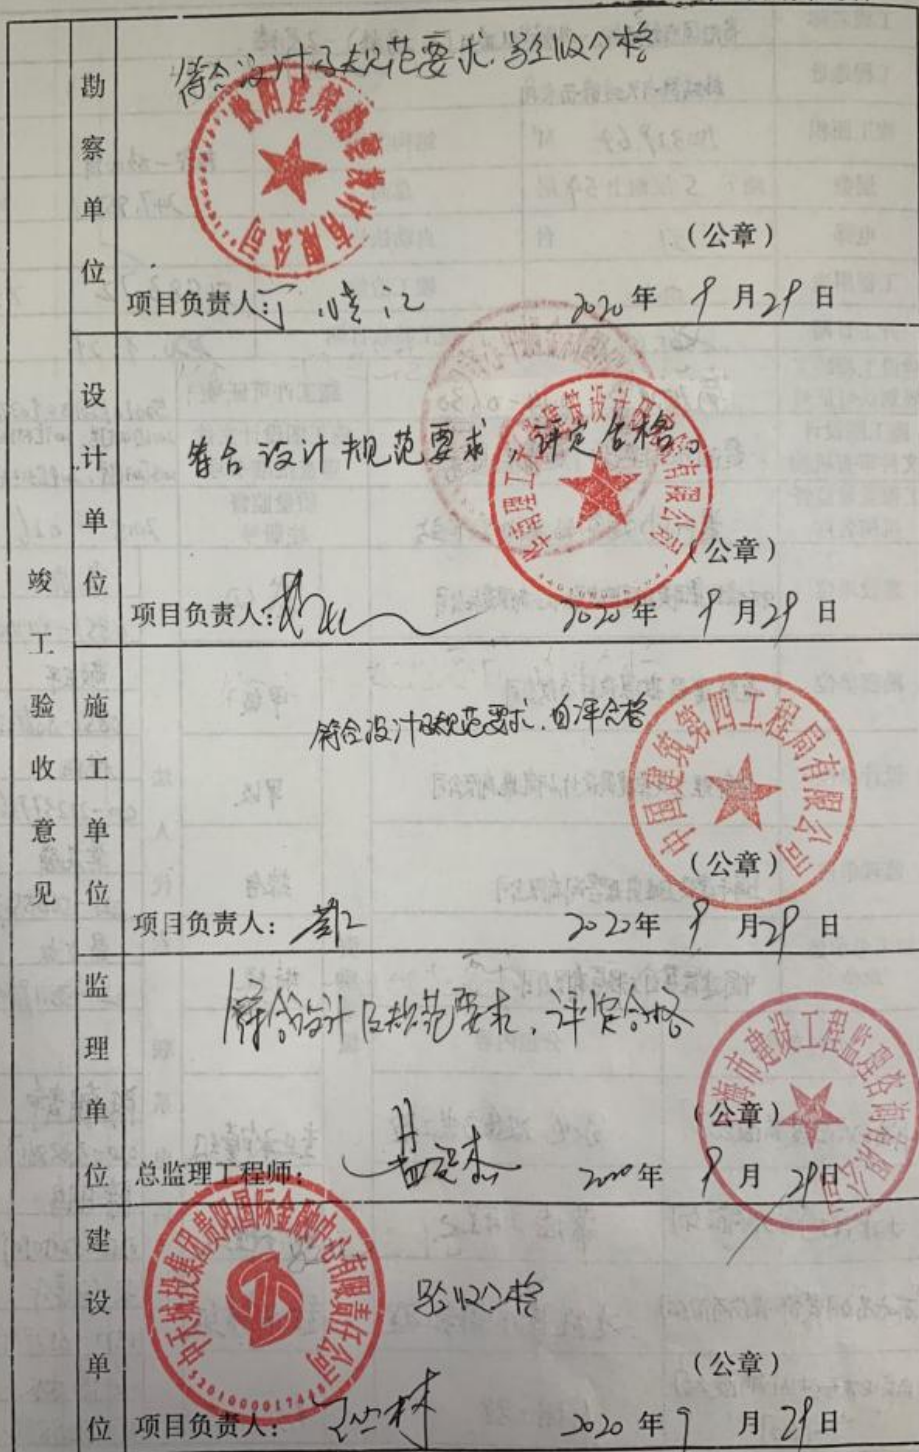 竣工验收意见
勘察单位
符合设计及规范要求,验收合格
贵阳建筑勘察设计有限公司
(公章)
项目负责人:
2020年9月29日
设计单位
符合设计规范要求,评定合格。
华南理工大学建筑设计研究院有限公司
(公章)
项目负责人:
2020年9月29日
施工单位
符合设计及规范要求,自评合格
中国建筑第四工程局有限公司
(公章)
项目负责人:
2020年9月29日
监理单位
符合设计及规范要求,评定合格
海市建设工程监理咨询有限公司
(公章)
总监理工程师:
2020年9月29日
建设单位
验收合格
中天城投集团贵阳国际金融中心有限责任公司
(公章)
项目负责人:
2020年9月29日